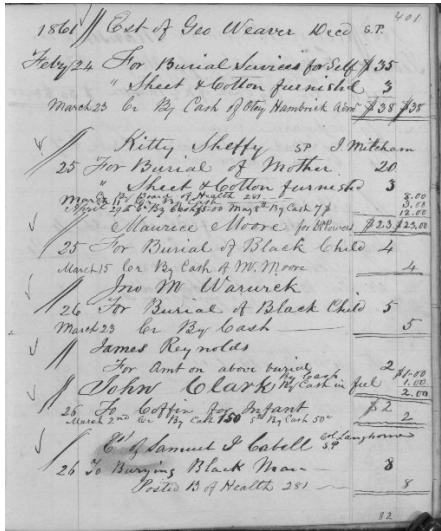 401
1861 Est of Geo Weaver Decd S.P.
Feby 24 For Burial Services for Self $35
" Sheet & Cotton furnishd 3
March 23 Cr By Cash of Otey Hambrick Adm $38 $38
Kitty Sheffy SP J Mitcham
25 For Burial of Mother 20
" Sheet & Cotton furnishd 3
March 15 Cr By Board of Health 281 8.00
April 29 By Cash $5.00 May 8th By Cash 7$ 3.00
12.00
Maurice Moore for $23 $23.00
25 For Burial of Black Child 4
March 15 Cr By Cash of M. Moore 4
Jno M Warwick
26 For Burial of Black Child 5
March 23 Cr By Cash 5
James Reynolds
For Amt on above burial 2 $1.00
By Cash
John Clark By Cash in full 1.00
2.00
26 To Coffin for Infant $2
March 2nd Cr By Cash 150 5th By Cash 50c 2
Est of Samuel J Cabell Col Langhorne
S.P.
26 To Burying Black Man 8
Posted B of Health 281 8
82